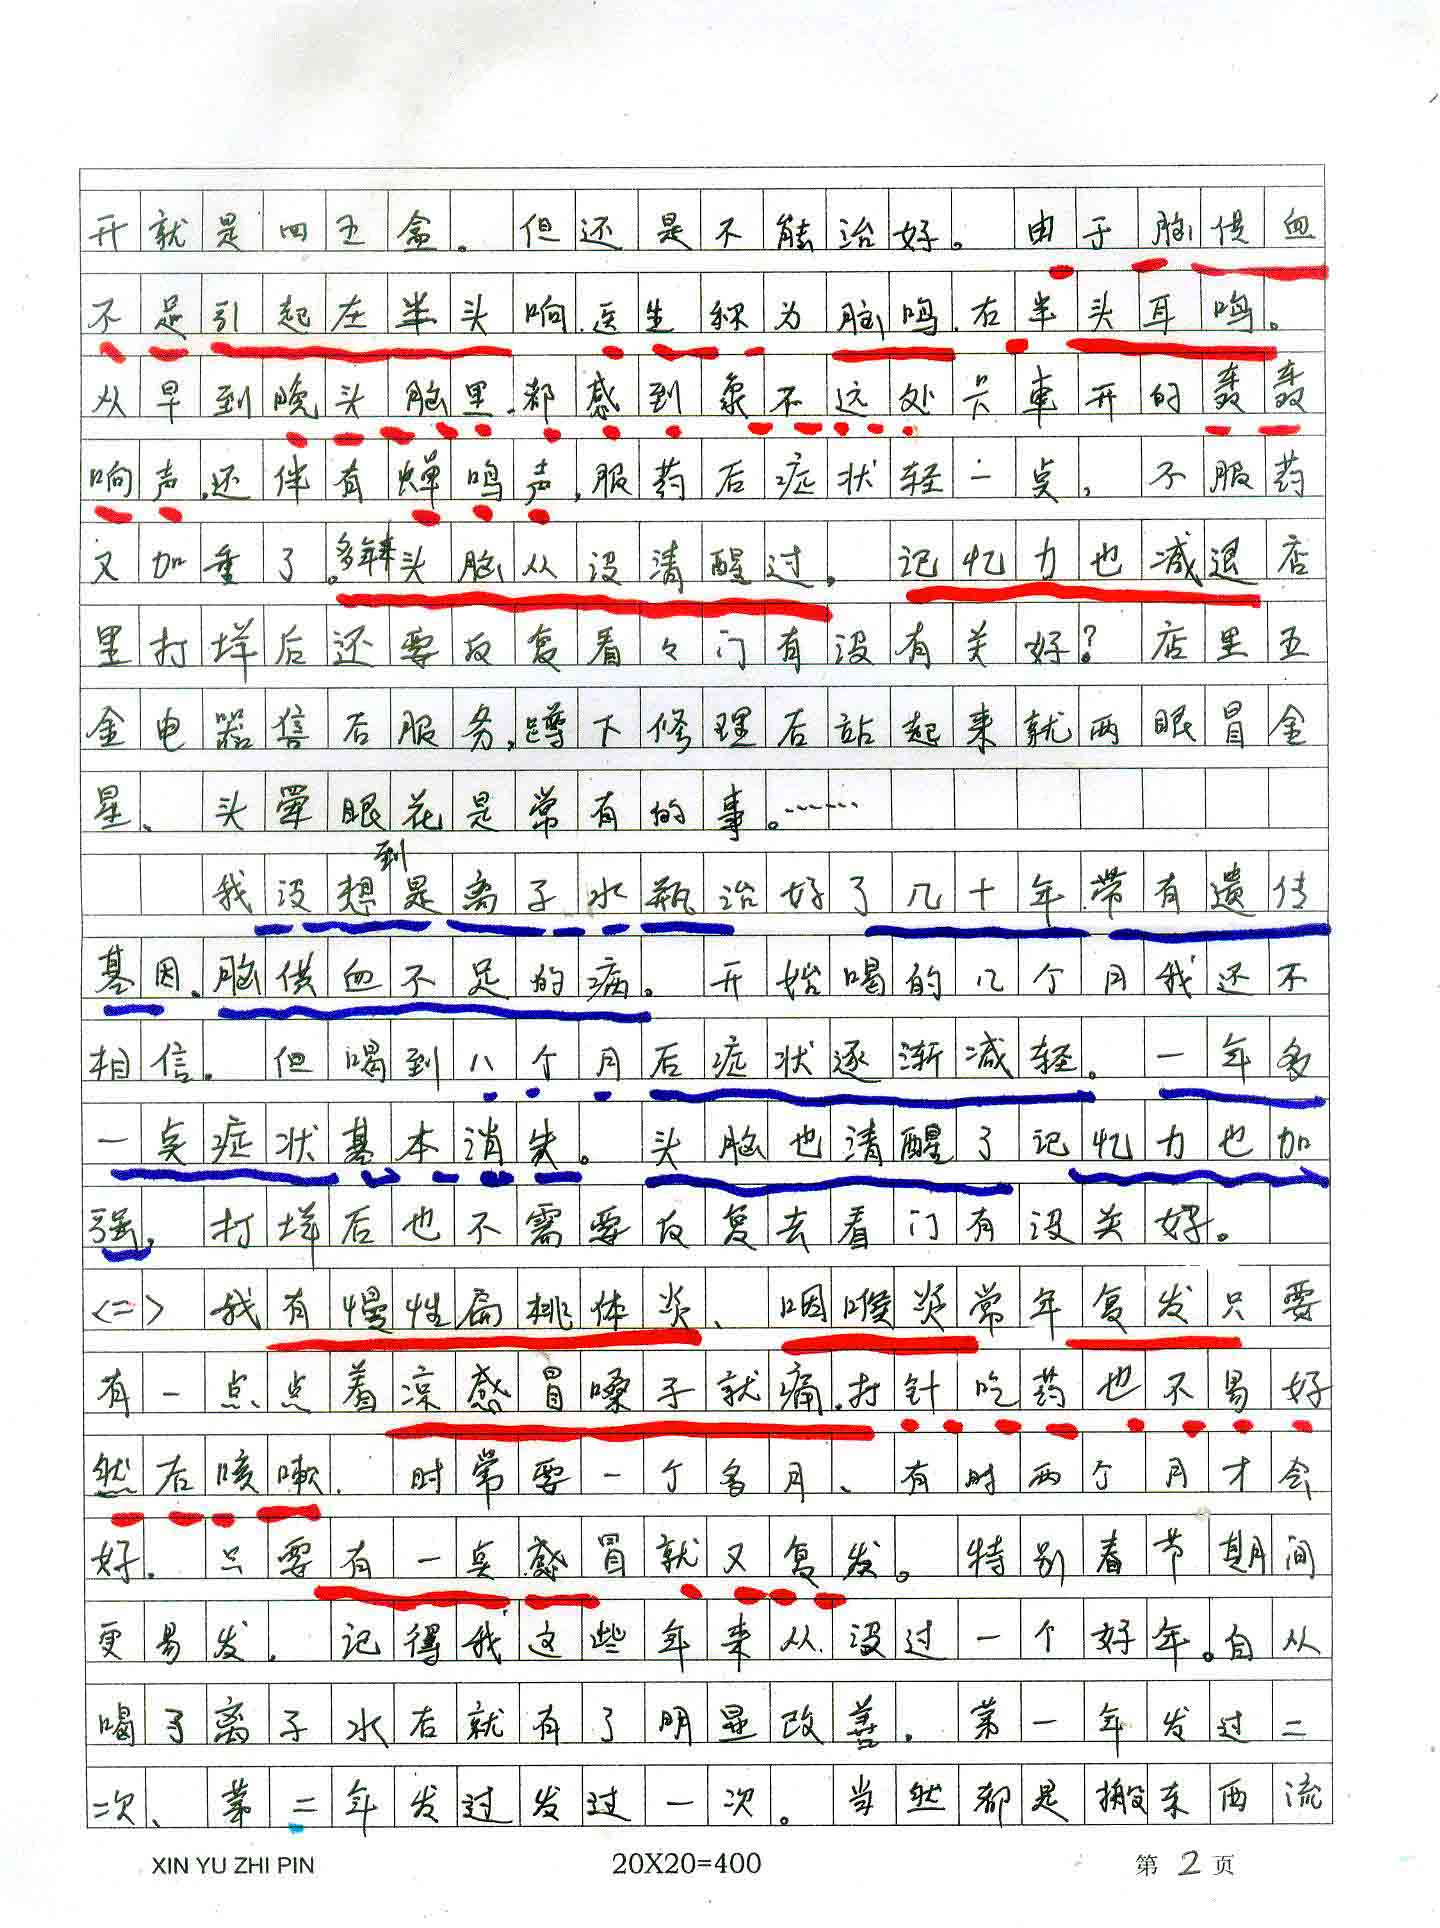 开就是四五盒。但还是不能治好。由于脑供血
不足引起左半头响.医生称为脑鸣.右半头耳鸣。
从早到晚头脑里.都感到象不远处卡車开的轰轰
响声.还伴有蝉鸣声,服药后症状轻一点,不服药
又加重了。多年来头脑从没清醒过。记忆力也减退店
里打烊后还要反复看々门有没有关好?店里五
金电器售后服务,蹲下修理后站起来就两眼冒金
星、头晕眼花是常有的事。……
我没想到是离子水瓶治好了几十年.带有遗传
基因.脑供血不足的病。开始喝的几个月我还不
相信.但喝到八个月后症状逐渐减轻。一年多
一点症状基本消失。头脑也清醒了记忆力也加
强,打烊后也不需要反复去看门有没关好。
<二>我有慢性扁桃体炎、咽喉炎常年复发只要
有一点点着凉感冒嗓子就痛.打针吃药也不易好
然后咳嗽.时常要一个多月、有时两个月才会
好.只要有一点感冒就又复发。特别春节期间
更易发.记得我这些年来从.没过一个好年。自从
喝了离子水后就有了明显改善.第一年发过二
二次、第二年发过发过一次。当然都是搬东西流
XIN YU ZHI PIN 20X20=400 第2页